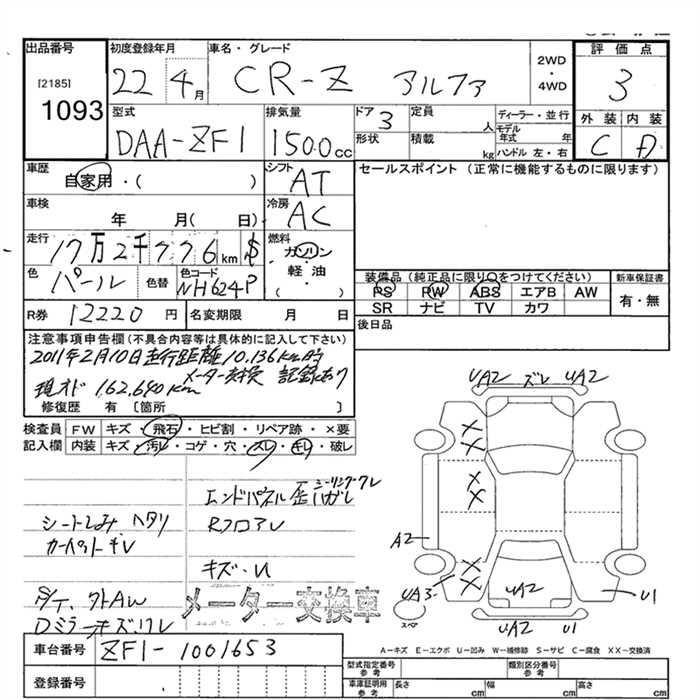 出品番号
[2185]
1093
初度登録年月
22 4月
車名・グレード
CR-Z アルファ
2WD
・
4WD
評価点
3
外装 内装
C D
型式
DAA-ZF1
排気量
1500cc
ドア
3
形状
定員
人
積載
kg
ディーラー・並行
モデル年式 年
ハンドル 左・右
車歴
自家用・( )
シフト
AT
セールスポイント (正常に機能するものに限ります)
車検
年 月( 日)
冷房
AC
走行
17万2千776km
燃料
ガソリン
軽油
( )
色
パール
色替
色コード
NH624P
装備品(純正品に限り○をつけてください)
PS PW ABS エアB AW
SR ナビ TV カワ
新車保証書
有・無
R券
12220円
名変期限 月 日
後日品
注意事項申告欄(不具合内容等は具体的に記入して下さい)
2011年2月10日走行距離10,136km時
メーター交換 記録あり
現オド 162,640km
修復歴 有〔箇所 〕
検査員記入欄
FW キズ・飛石・ヒビ割・リペア跡・×要
内装 キズ・汚レ・コゲ・穴・スレ・キレ・破レ
エンドパネル歪 シーリングハガレ
シートしみ ヘタリ
Rフロアレ
カーペットキレ
キズ・U
タイ、外AW
Dミラーキズ・ワレ
メーター交換車
UA2 ズレ UA2
XX
XX
A2
XX
UA3
UA2
U1
スペア
UA2 U1
A-キズ E-エクボ U-凹み W-補修跡 S-サビ C-腐食 XX-交換済
車台番号
ZF1-1001653
登録番号
型式指定番号
参考
類別区分番号
参考
車庫証明用
参考
長さ cm 幅 cm 高さ cm